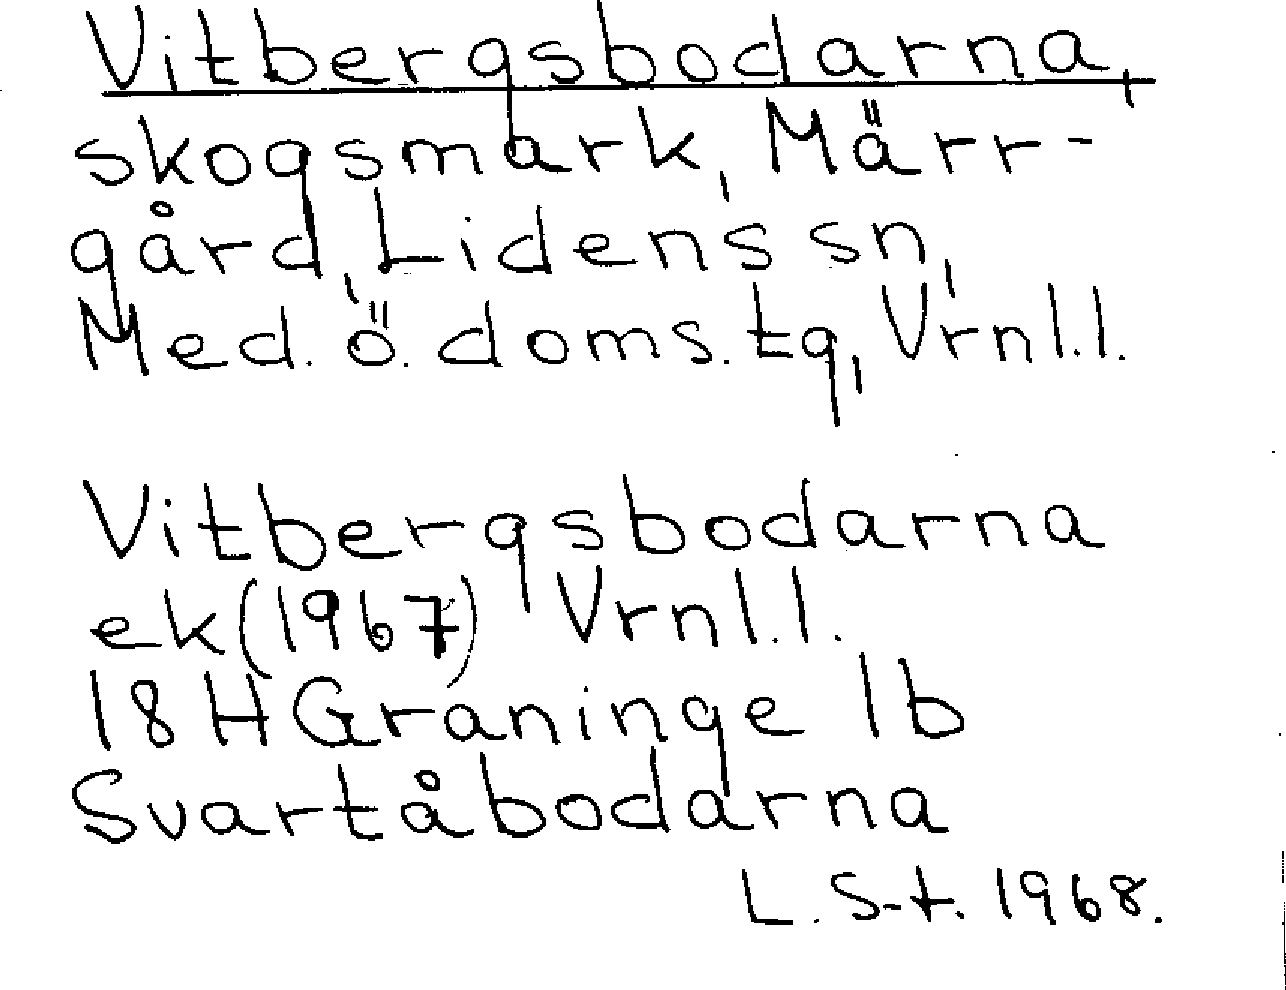 Vitbergsbodarna,
skogsmark, Märr-
gård, Lidens sn,
Med. ö. doms. tg, Vrnl.l.
Vitbergsbodarna
ek (1967) Vrnl.l.
18 H Graninge 1b
Svartåbodarna
L. S-t. 1968.